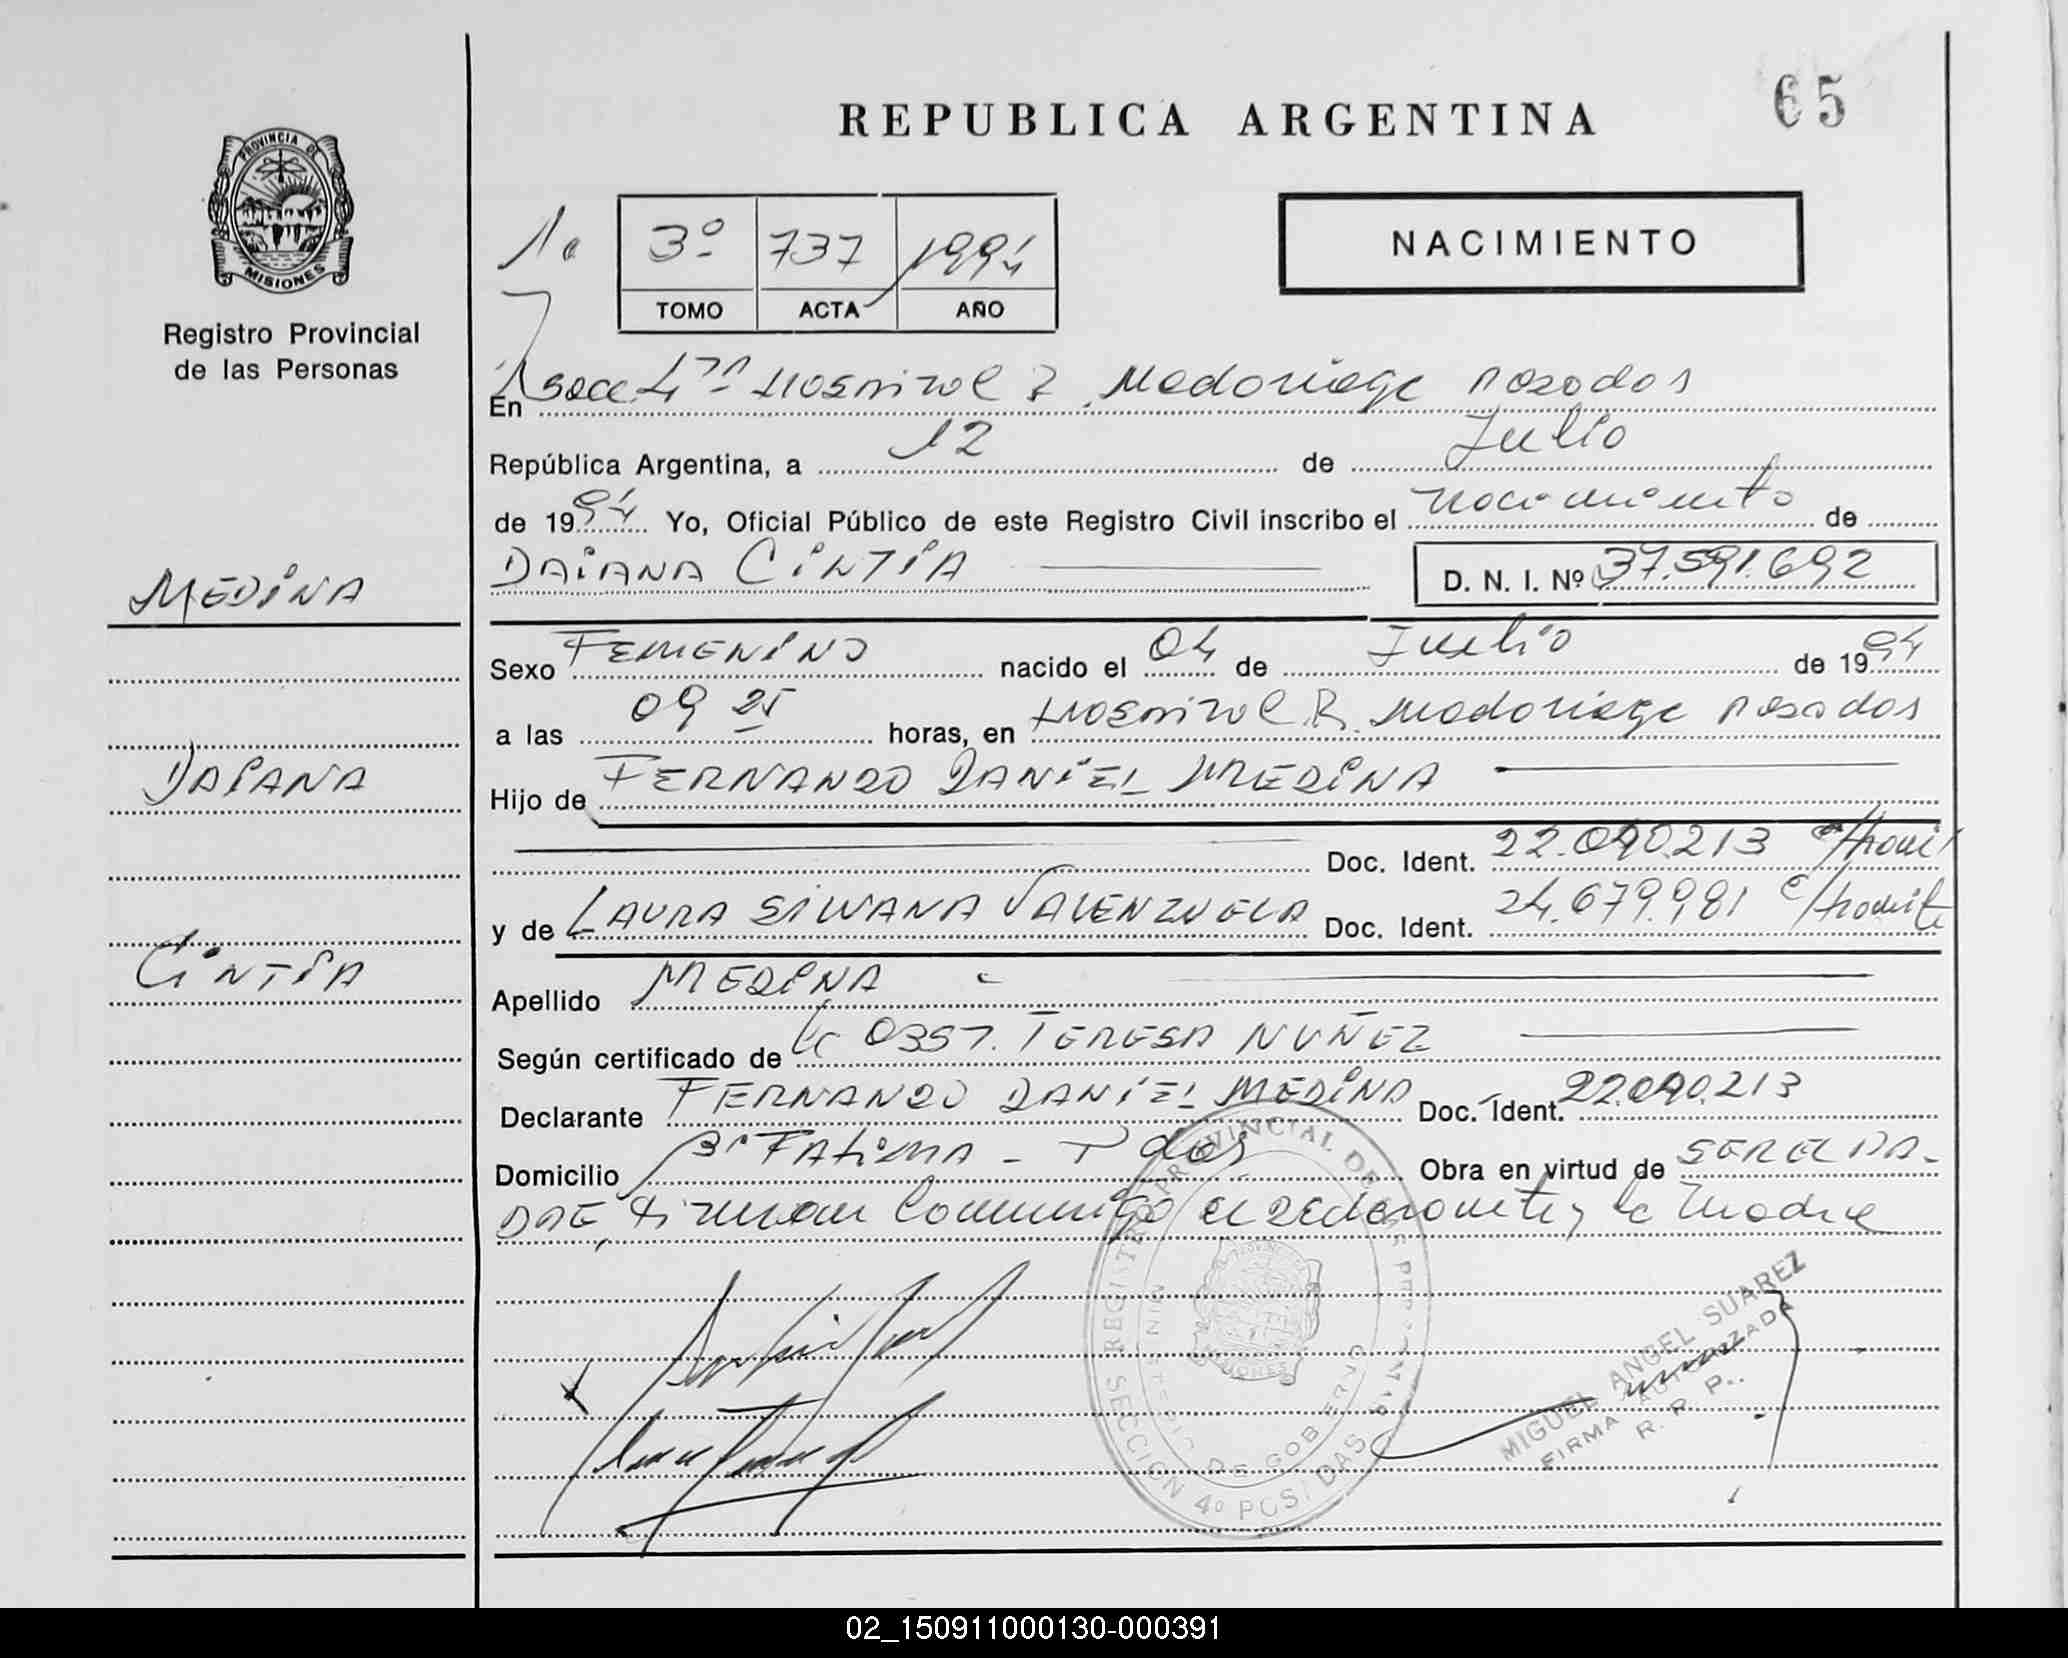 65
REPUBLICA ARGENTINA
PROVINCIA DE
MISIONES
Registro Provincial
de las Personas
3º 737 1994
TOMO ACTA AÑO
NACIMIENTO
En Secc 4ta Hospital R. Madariaga Posadas
República Argentina, a 12 de Julio
de 1994 Yo, Oficial Público de este Registro Civil inscribo el nacimiento de
MEDINA
DAIANA CINTIA D. N. I. Nº 37.591.692
Sexo FEMENINO nacido el 04 de Julio de 1994
a las 09 25 horas, en Hospital R. Madariaga Posadas
DAIANA
Hijo de FERNANDO DANIEL MEDINA
Doc. Ident. 22.090.213
y de LAURA SILVANA VALENZUELA Doc. Ident. 24.679.981
CINTIA
Apellido MEDINA
Según certificado de 0357. TERESA NUÑEZ
Declarante FERNANDO DANIEL MEDINA Doc. Ident. 22.090.213
Domicilio Bº FATIMA - Pdas Obra en virtud de SER EL PA-
DRE, Firman Conmigo el declarante y la madre
REGISTRO PROVINCIAL DE LAS PERSONAS
MINISTERIO DE GOBIERNO
MISIONES
SECCION 4º POSADAS
MIGUEL ANGEL SUAREZ
FIRMA AUTORIZADA
R. P. P.
02_150911000130-000391